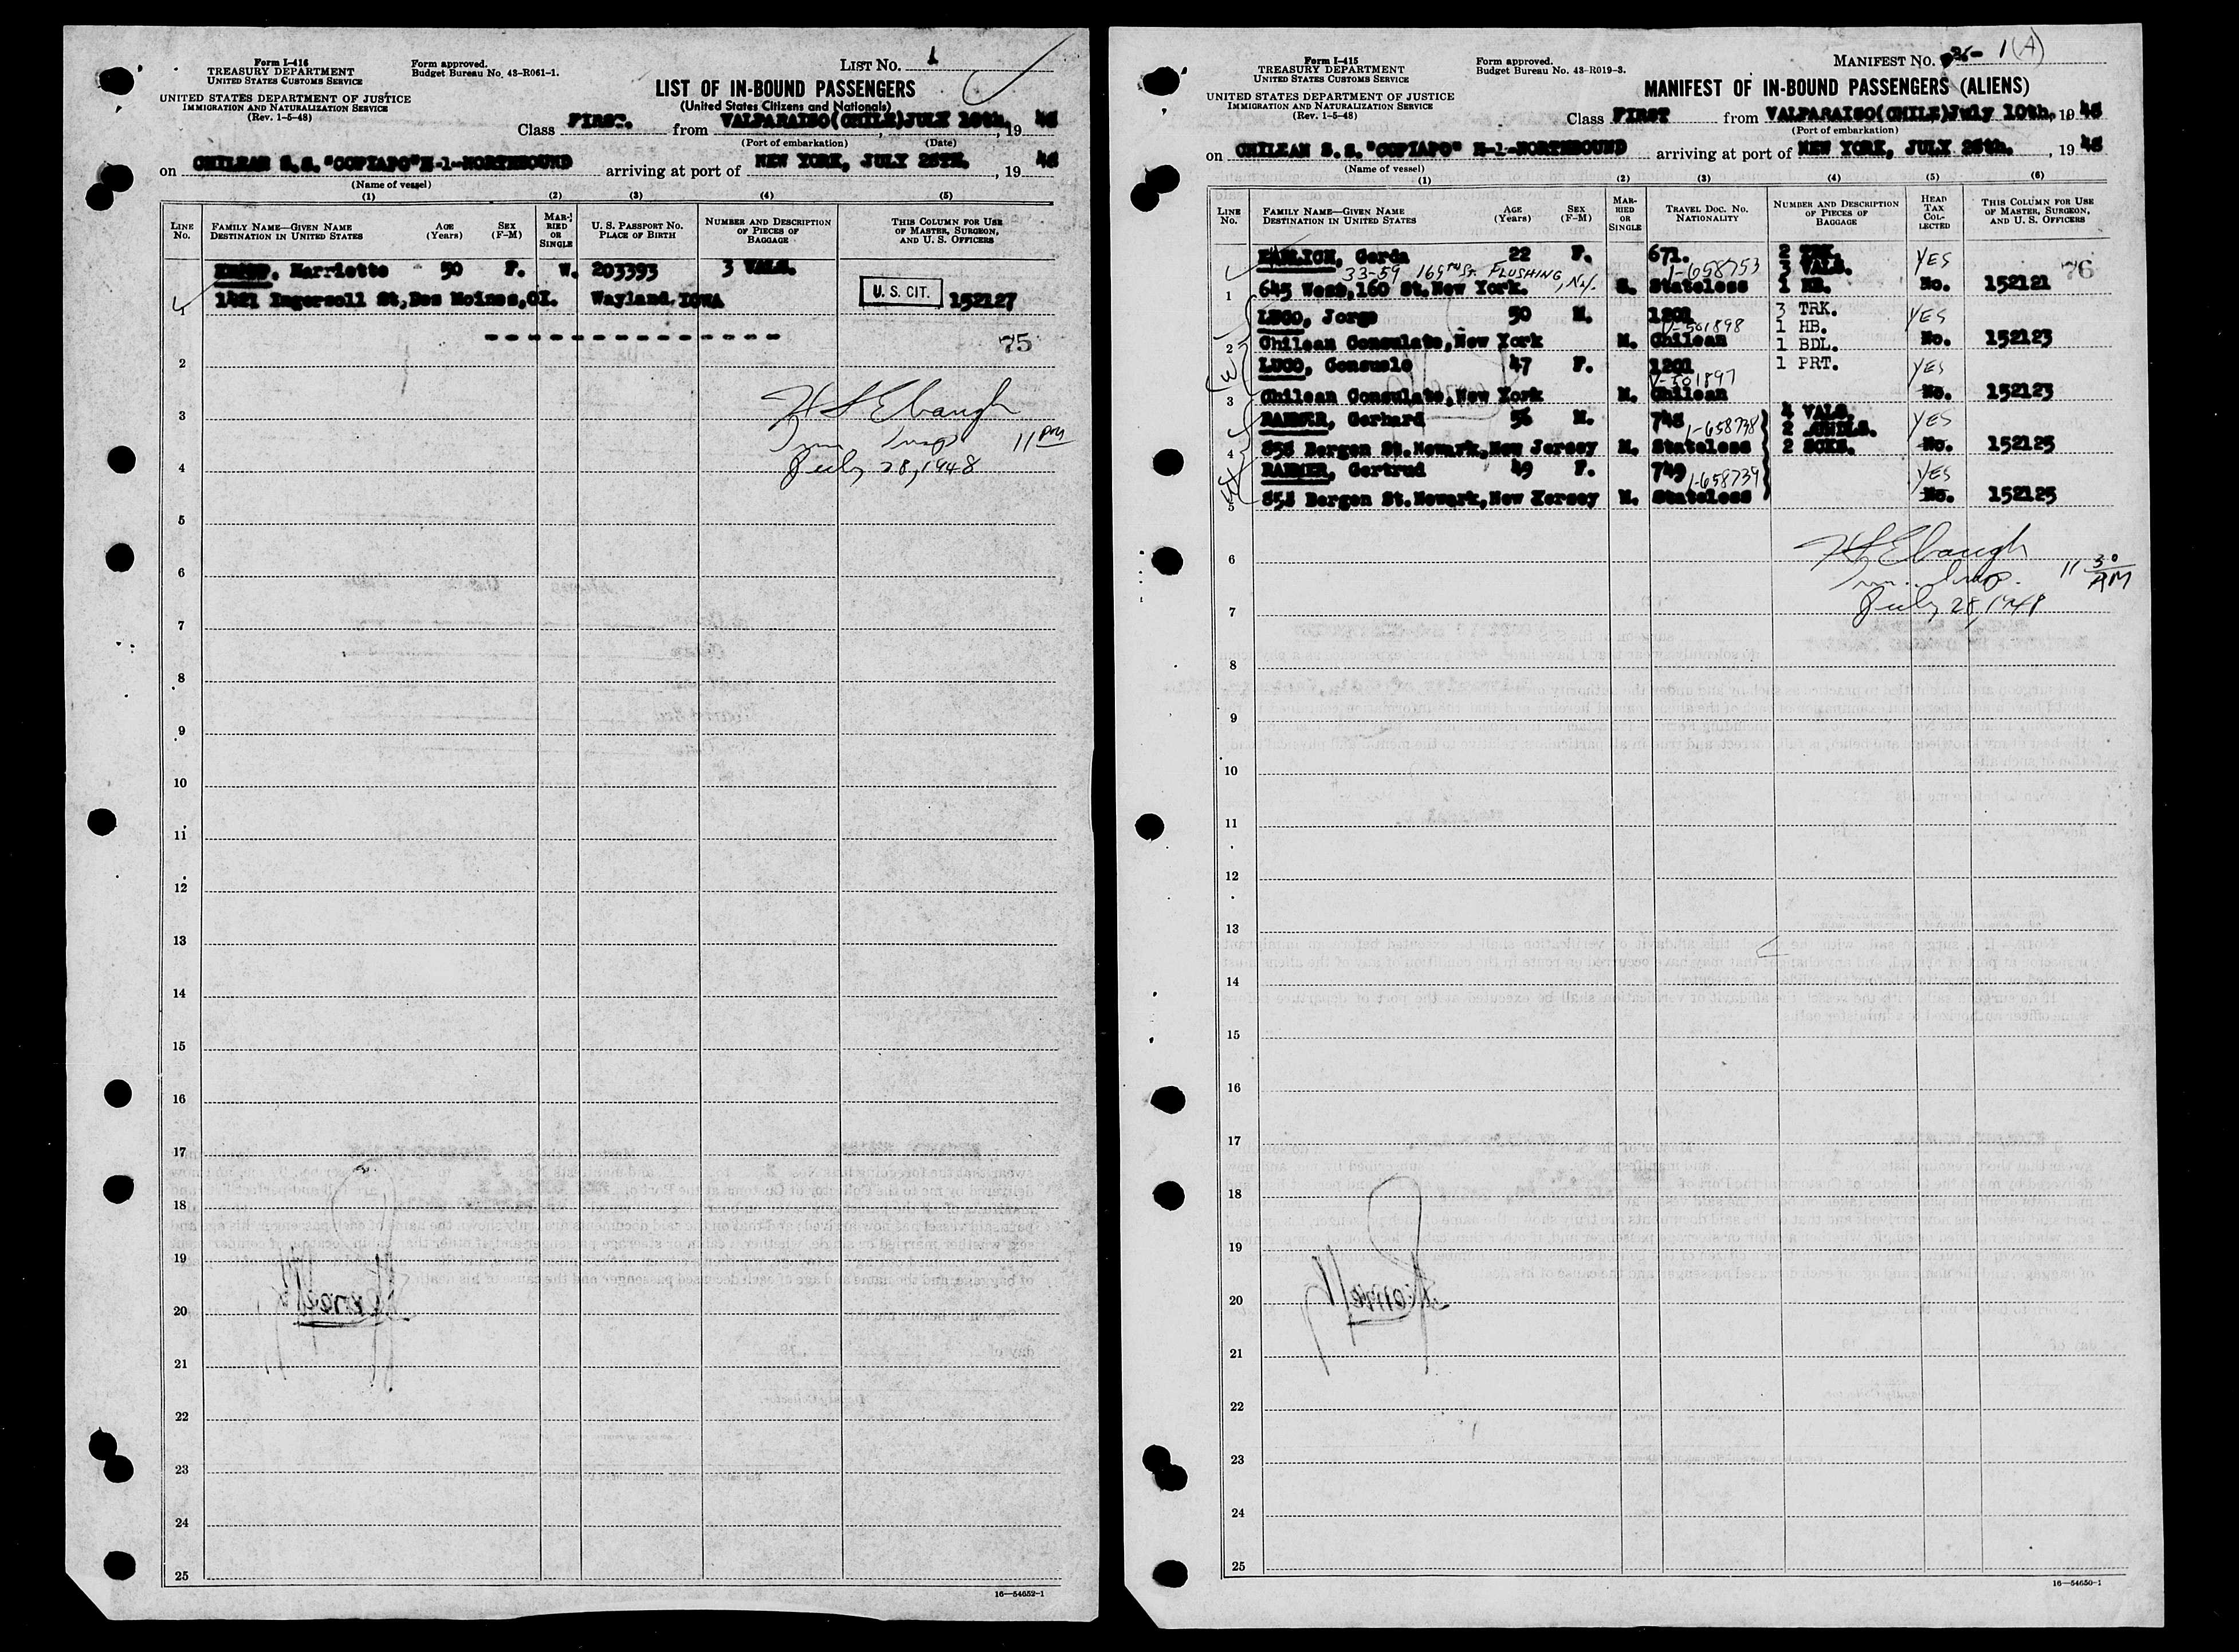 Form I-416
TREASURY DEPARTMENT
UNITED STATES CUSTOMS SERVICE
UNITED STATES DEPARTMENT OF JUSTICE
IMMIGRATION AND NATURALIZATION SERVICE
(Rev. 1-5-48)
Form approved.
Budget Bureau No. 43-R061-1.
LIST NO. 1
LIST OF IN-BOUND PASSENGERS
(United States Citizens and Nationals)
Class FIRST. from VALPARAISO(CHILE)JULY 10th, 19 48
(Port of embarkation) (Date)
on CHILEAN S.S."COPIAPO"N-1-NORTHBOUND arriving at port of NEW YORK, JULY 28TH. , 19 48
(Name of vessel)
(1) (2) (3) (4) (5)
LINE No. FAMILY NAME—GIVEN NAME DESTINATION IN UNITED STATES AGE (Years) SEX (F-M) MARRIED OR SINGLE U. S. PASSPORT NO. PLACE OF BIRTH NUMBER AND DESCRIPTION OF PIECES OF BAGGAGE THIS COLUMN FOR USE OF MASTER, SURGEON, AND U. S. OFFICERS
Harriette 50 F. W. 203393 3 VALS.
1 1421 Ingersoll St,Des Moines,OI. Wayland,IOWA U. S. CIT. 152127
75
2
H S Ebaugh
3
Imm Insp 11 PM
July 28, 1948
4
5
6
7
8
9
10
11
12
13
14
15
16
17
18
19
20
21
22
23
24
25
16—54652-1
Form I-415
TREASURY DEPARTMENT
UNITED STATES CUSTOMS SERVICE
UNITED STATES DEPARTMENT OF JUSTICE
IMMIGRATION AND NATURALIZATION SERVICE
(Rev. 1-5-48)
Form approved.
Budget Bureau No. 43-R019-3.
MANIFEST NO. 1(A)
MANIFEST OF IN-BOUND PASSENGERS (ALIENS)
Class FIRST from VALPARAISO(CHILE)July 10th, 19 48
(Port of embarkation)
on CHILEAN S.S."COPIAPO" N-1-NORTHBOUND arriving at port of NEW YORK, JULY 28th. , 19 48
(Name of vessel)
(1) (2) (3) (4) (5) (6)
LINE No. FAMILY NAME—GIVEN NAME DESTINATION IN UNITED STATES AGE (Years) SEX (F-M) MARRIED OR SINGLE TRAVEL DOC. NO. NATIONALITY NUMBER AND DESCRIPTION OF PIECES OF BAGGAGE HEAD TAX COLLECTED THIS COLUMN FOR USE OF MASTER, SURGEON, AND U. S. OFFICERS
Gerda 22 F. 671. 2 TRK. YES 76
33-59 165TH St. FLUSHING, N.Y. I-658753 3 VALS.
1 645 West,160 St.New York. S. Stateless 1 HB. No. 152121
LUGO, Jorge 50 M. 1201 3 TRK. YES
V-501898 1 HB.
2 Chilean Consulate,New York M. Chilean 1 BDL. No. 152123
LUGO, Consuelo 47 F. 1201 1 PRT. YES
V-501897
3 Chilean Consulate,New York M. Chilean No. 152123
Gerhard 56 M. 748 I-658738 4 VALS. YES
2 BNDLS.
4 858 Bergen St.Newark,New Jersey M. Stateless 2 SCKS. No. 152125
Gertrud 49 F. 749 I-658739 YES
5 858 Bergen St.Newark,New Jersey M. Stateless No. 152125
H S Ebaugh
6
Imm. Insp. 11 30 AM
July 28, 1948
7
8
9
10
11
12
13
14
15
16
17
18
19
20
21
22
23
24
25
16—54650-1